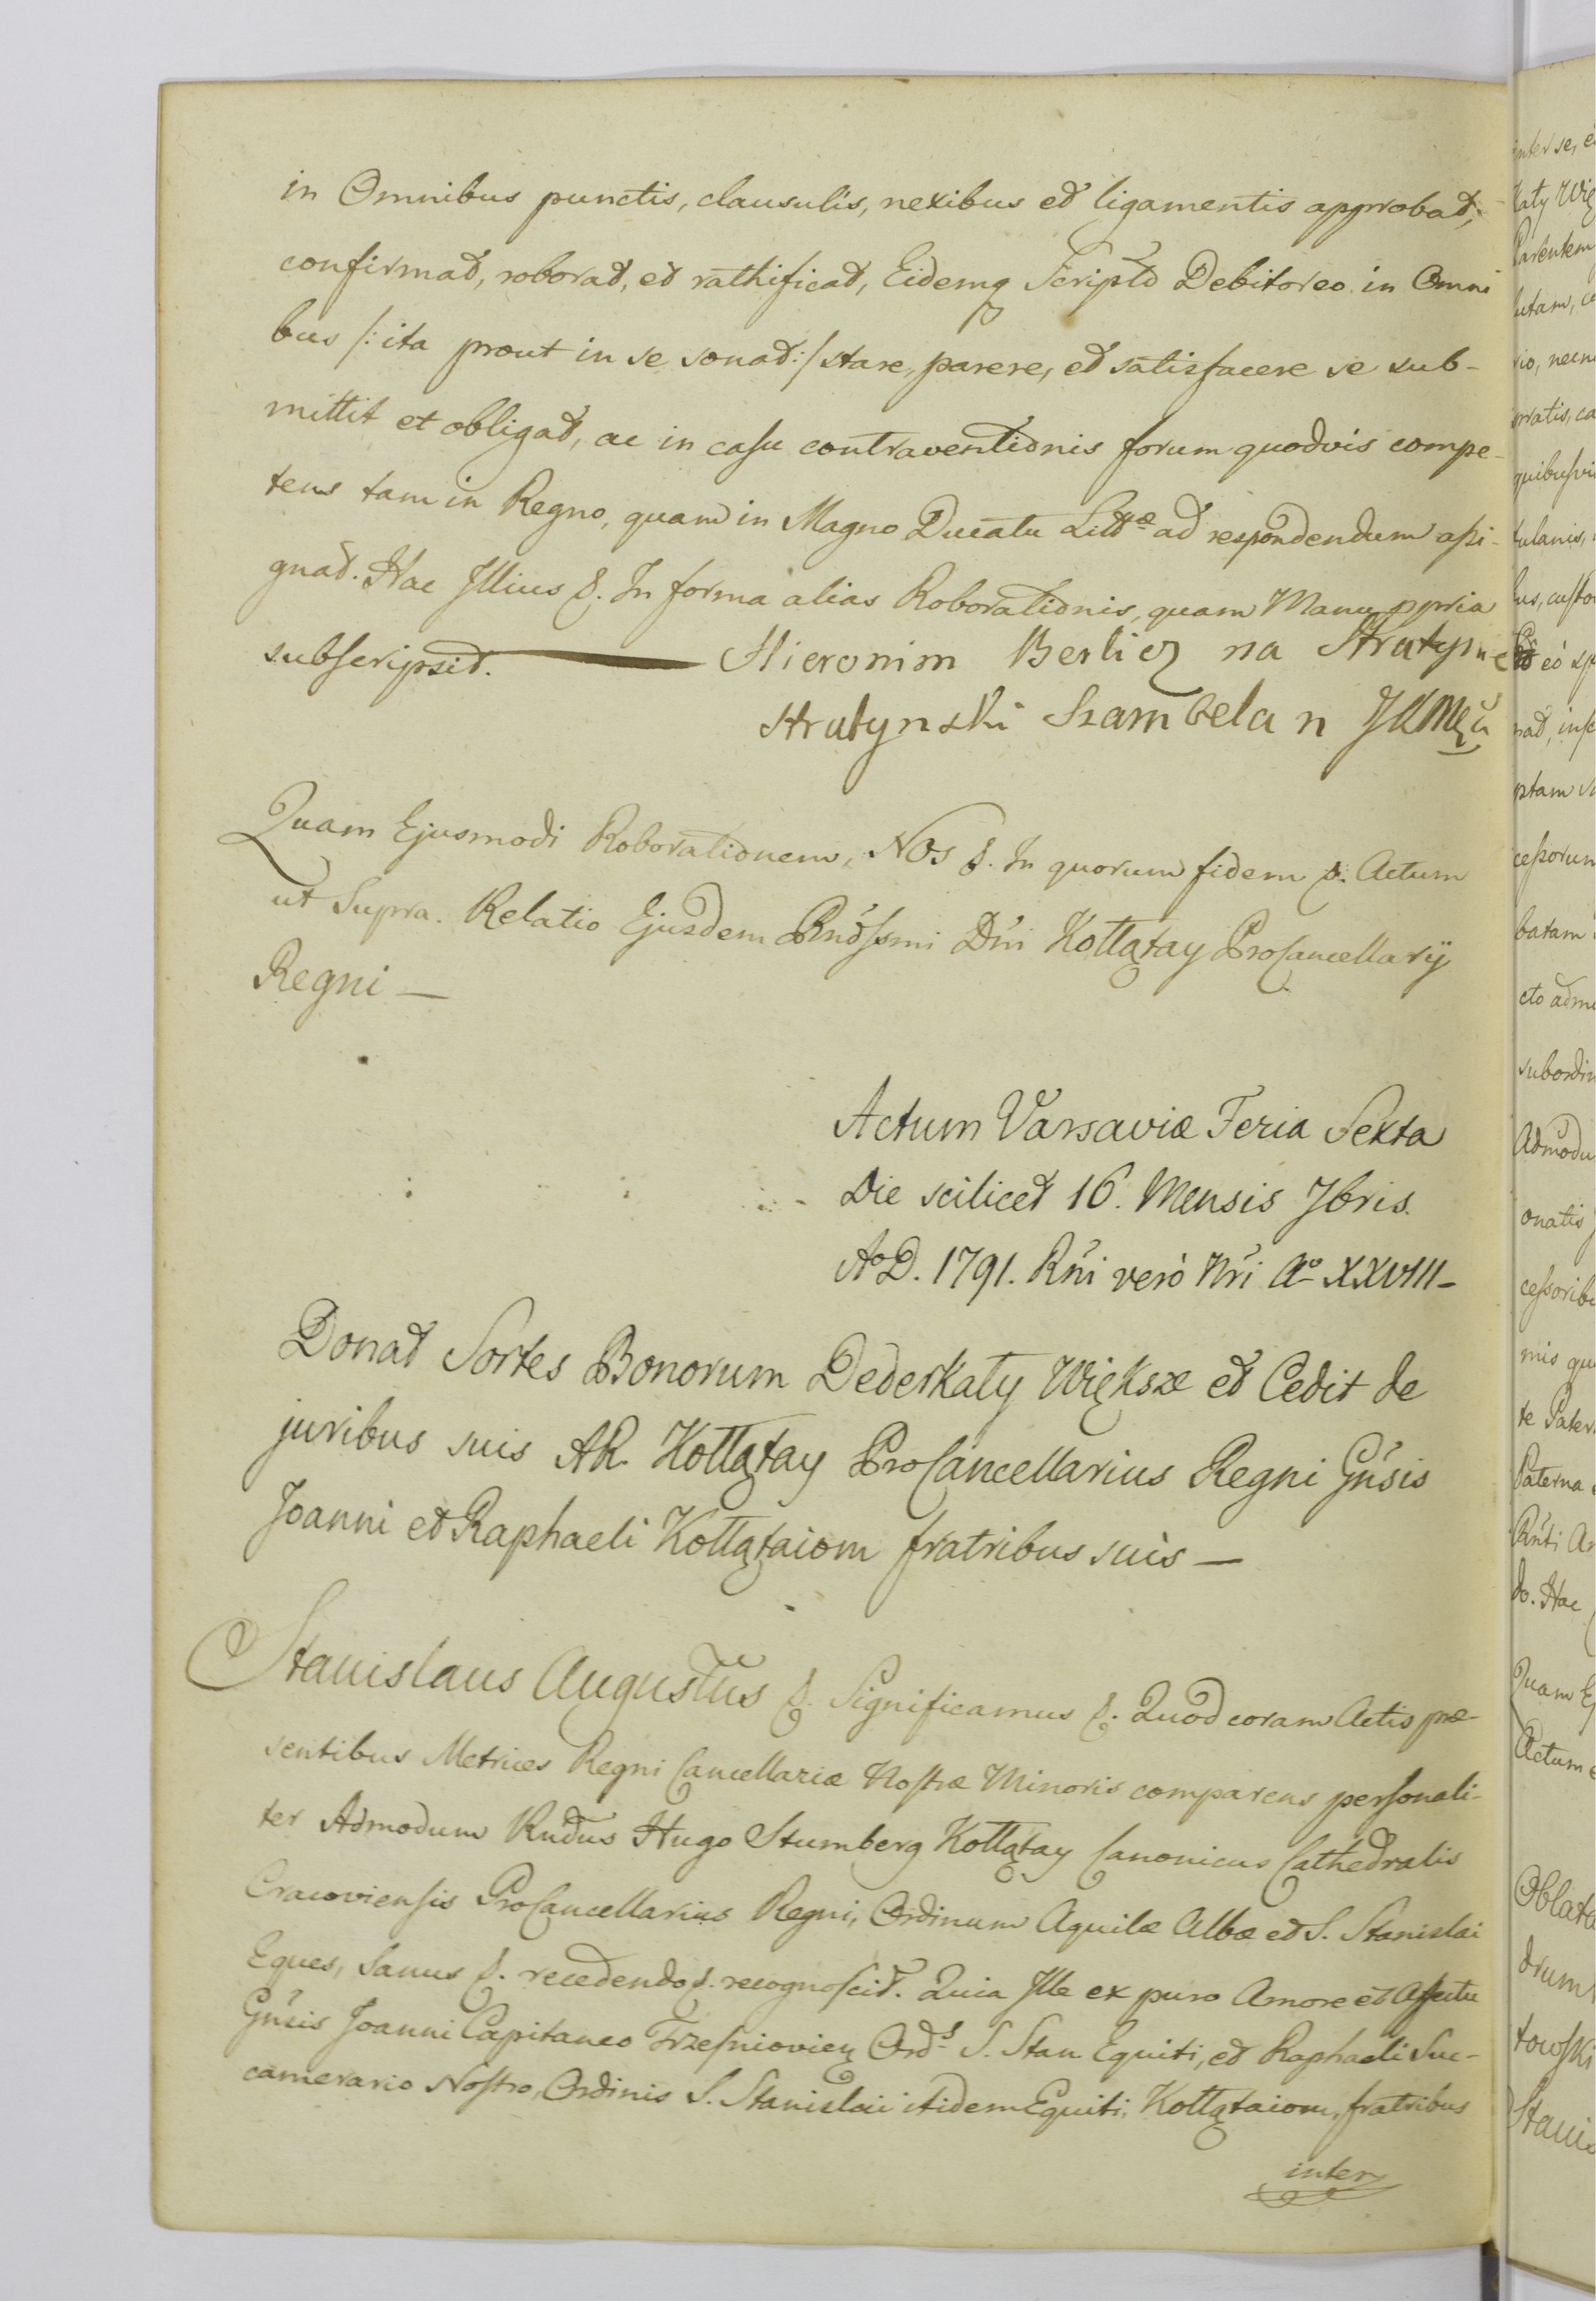 in Omnibus punctis, clausulis, nexibus et ligamentis approbat,
confirmat, roborat, et rathificat, Eidemq Scripto Debitoreo in Omni
bus /: ita prout in se sonat :/ stare, parere, et satisfacere se sub-
mittit et obligat, ac in casu contraventionis forum quodvis compe-
tens tam in Regno, quam in Magno Ducatu Littæ ad respondendum assi-
gnat. Hac Illius &. In forma alias Roborationis, quam Manu ppria
subscripsit. — Hieronim Berlicz na Strutyn
Strutynski Szambelan JKMci
Quam Ejusmodi Roborationem, Nos &. In quorum fidem &. Actum
ut Supra. Relatio Ejusdem Rndssmi Dni Kołłątay ProCancellarij
Regni —
Actum Varsaviæ Feria Sexta
Die scilicet 16. Mensis 7bris.
Ao D. 1791. Rni verò Nri Ao XXVIII-
Donat Sortes Bonorum Dederkały Większe et Cedit de
juribus suis AR. Kołłątay ProCancellarius Regni Gnsis
Joanni et Raphaeli Kołłątaiom fratribus suis —
Stanislaus Augustus &. Significamus &. Quod coram Actis præ-
sentibus Metrices Regni Cancellariæ Nostræ Minoris comparens personali-
ter Admodum Rndus Hugo Stumberg Kołłątay Canonicus Cathedralis
Cracoviensis ProCancellarius Regni, Ordinum Aquilæ Albæ et S. Stanislai
Eques, Sanus &. recedendo &. recognoscit. Quia Ille ex puro Amore et Affectu
Gnsis Joanni Capitaneo Trzesniovien Ords S. Stan Equiti, et Raphaeli Suc-
camerario Nostro, Ordinis S. Stanislai itidem Equiti, Kołłątaiom, fratribus
inter